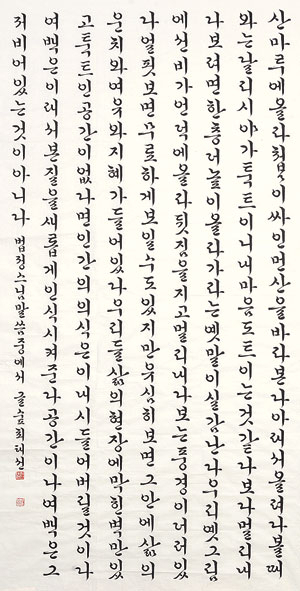 산마루에올라첩첩이싸인먼산을바라본다아래서올려다볼때
와는달리시야가툭트이니내마음도트이는것같다보다멀리내
다보려면한층더높이올라가라는옛말이실감난다우리옛그림
에선비가언덕에올라뒷짐을지고멀리내다보는풍경이더러있
다얼핏보면무료하게보일수도있지만유심히보면그안에삶의
운치와여유와지혜가들어있다우리들삶의현장에막힌벽만있
고툭트인공간이없다면인간의의식은이내시들어버릴것이다
여백은이래서본질을새롭게인식시켜준다공간이나여백은그
저비어있는것이아니다 법정스님말씀중에서 글숲최태선